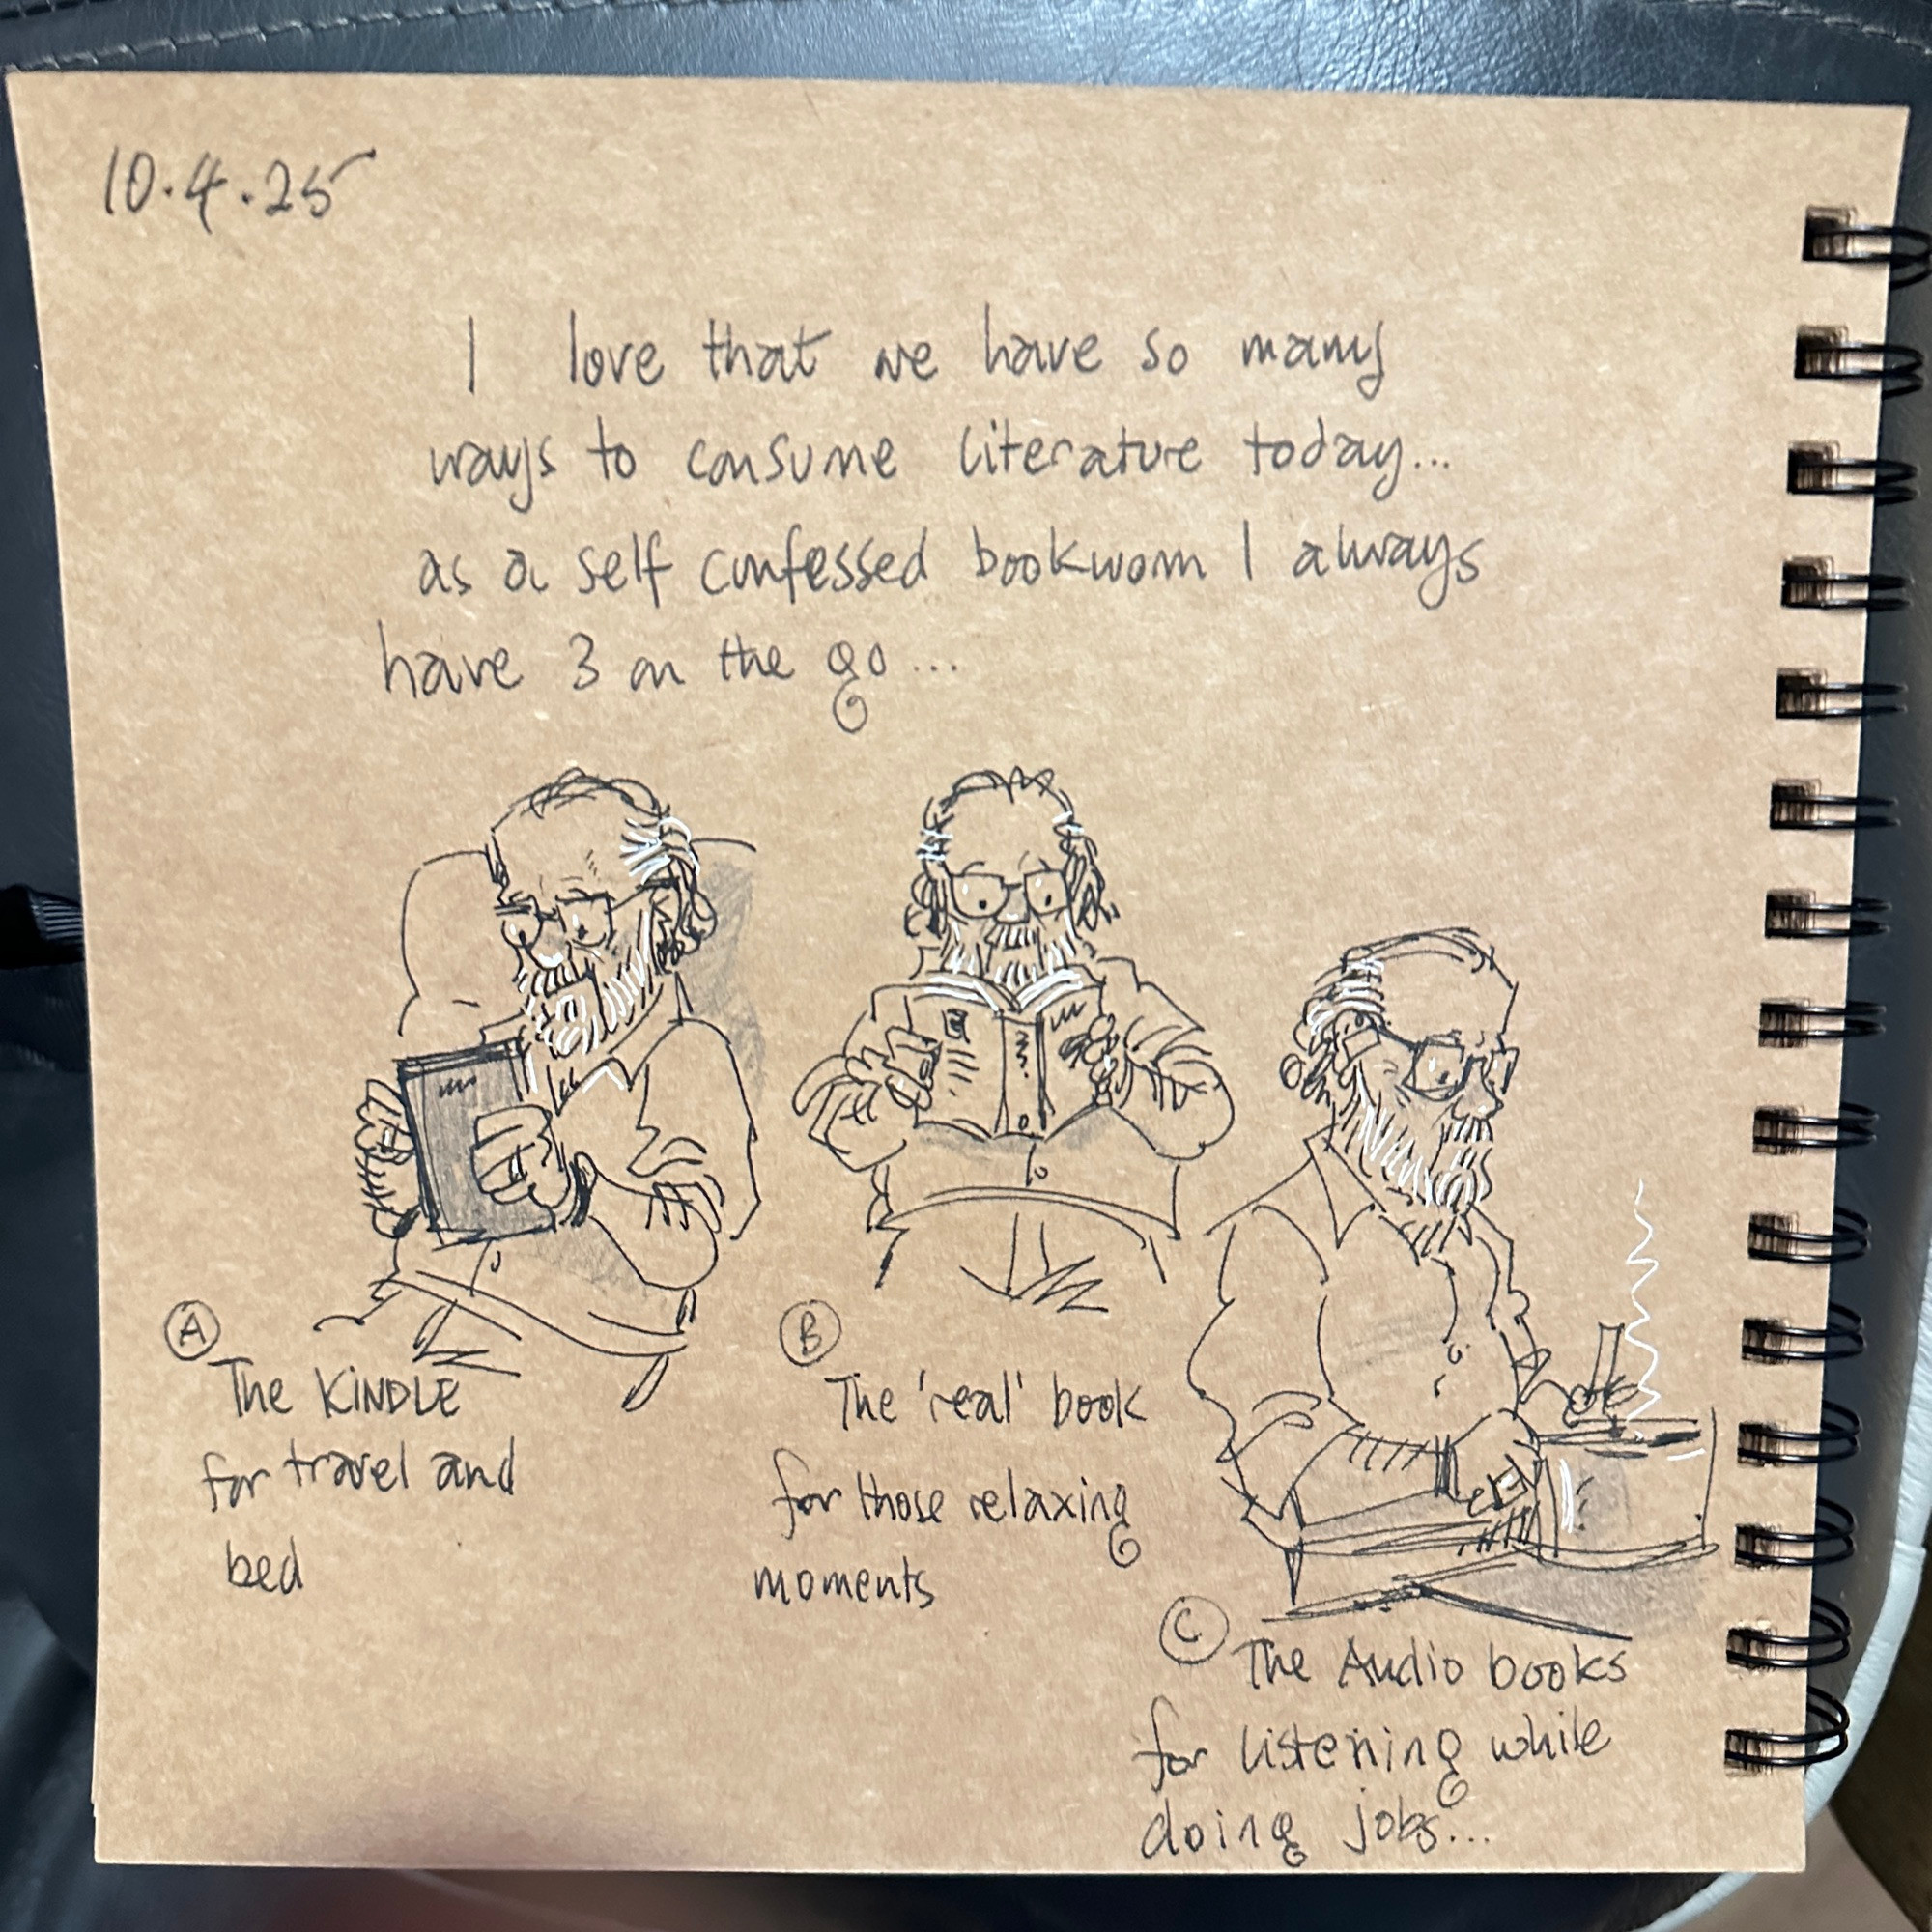 10.4.25
I love that we have so many
ways to consume literature today...
as a self confessed bookworm I always
have 3 on the go...
A
The KINDLE
for travel and
bed
B
The 'real' book
for those relaxing
moments
C
The Audio books
for listening while
doing jobs...